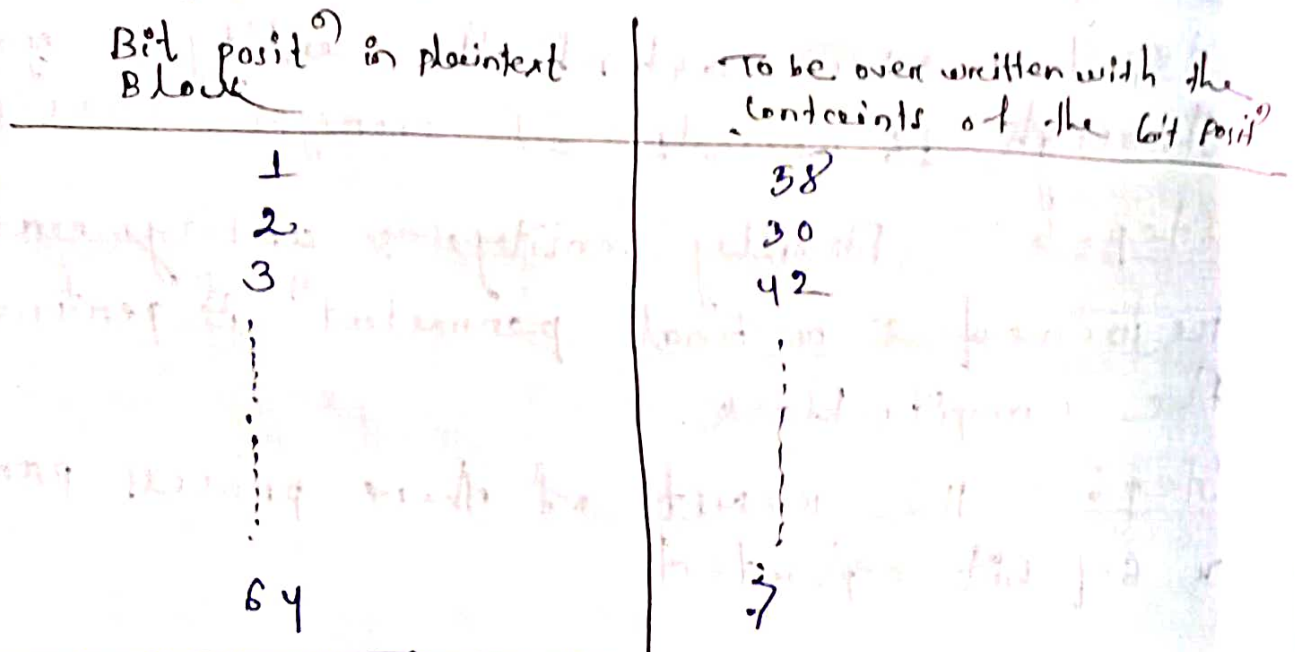 Bit posit⁾ in plaintext.
Block
To be over written with the
contents of the bit posit⁾
1 58
2 30
3 42
64 7